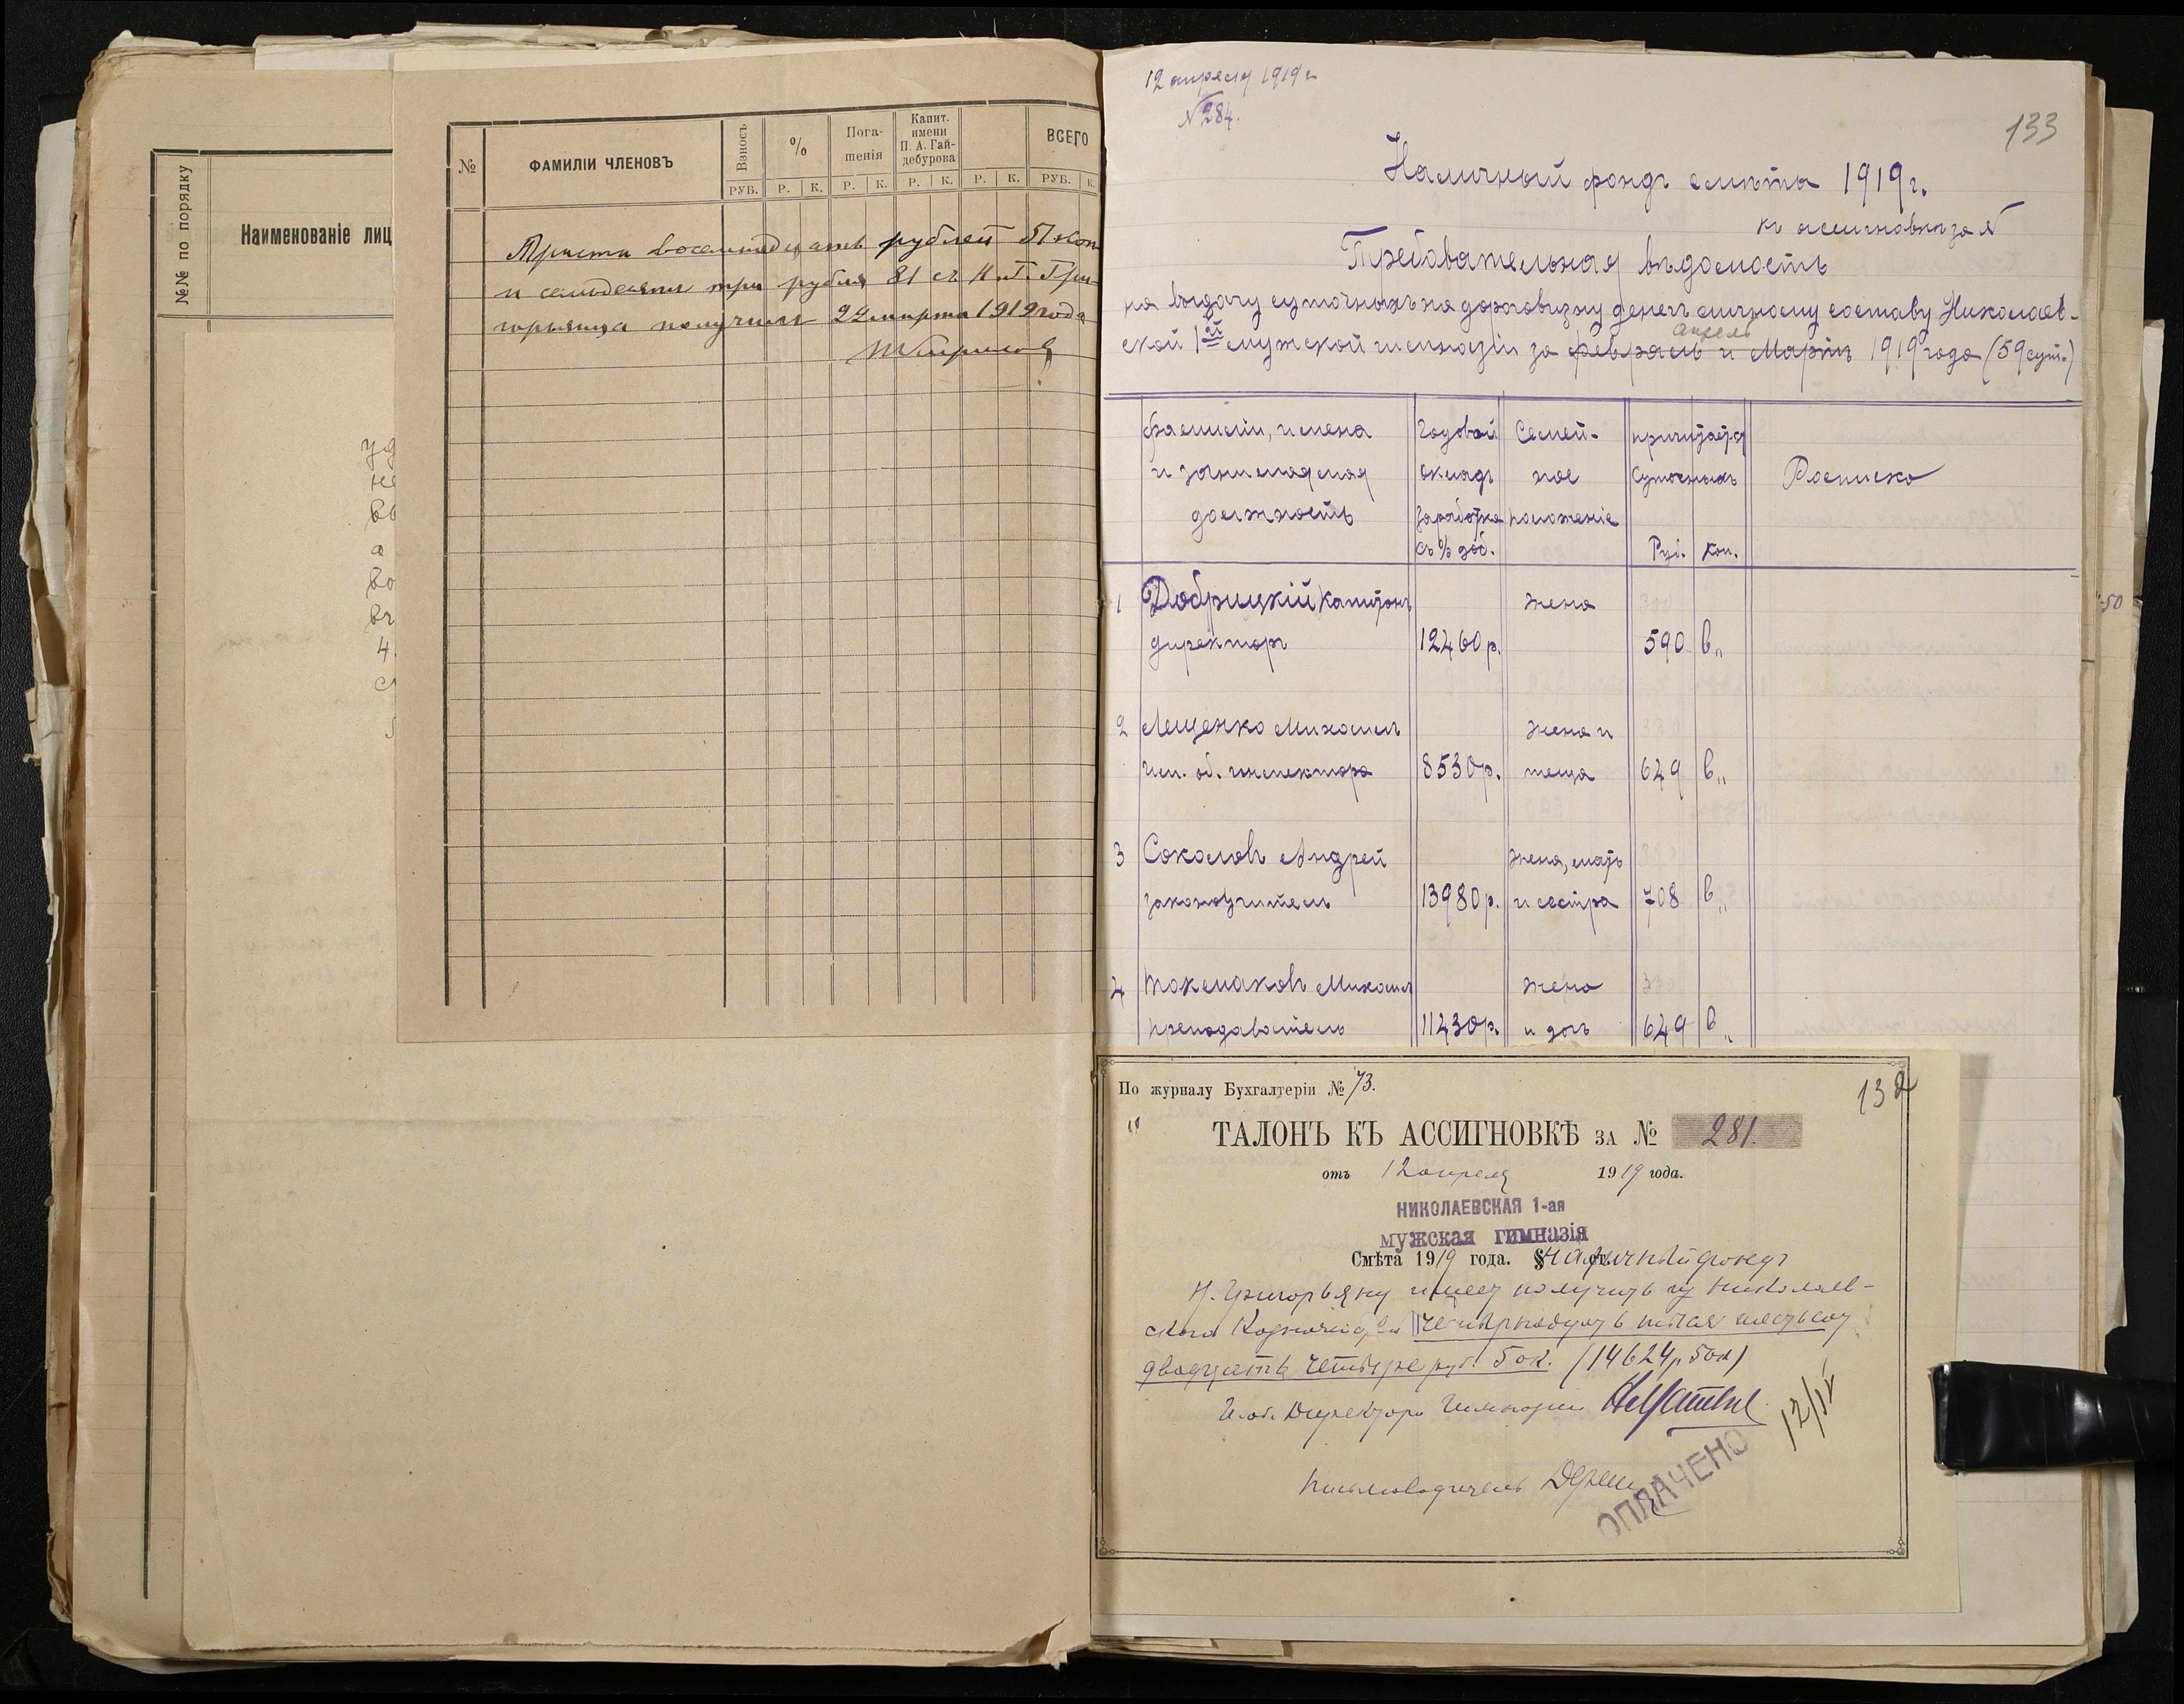 №№ по порядку
Наименованіе лиц
№
ФАМИЛІИ ЧЛЕНОВЪ
Взносъ
%
Пога-
шенія
Капит.
имени
П. А. Гай-
дебурова
ВСЕГО
РУБ. Р. К. Р. К. Р. К. Р. К. РУБ. К.
Триста восемнадцать рублей 51 коп
и семьдесят три рубля 81 съ Н. Г. Гри-
горьянца получилъ 22 марта 1919 года
12 апреля 1919 г
№ 284.
133
Наличный фондъ смѣты 1919 г.
къ ассигновкѣ за №
Требовательная вѣдомость
на выдачу суточныхъ на дороговизну денегъ личному составу Николаев-
апрель
ской 1ой мужской гимназіи за февраль и Мартъ 1919 года (59 сут.)
Фамиліи, имена
и занимаемая
должность
Годовой
окладъ
заработка
съ % доб.
Семей-
ное
положеніе
причитается
суточныхъ
Руб. Коп.
Росписка
1 Добрицкій Капитонъ жена
директоръ 12460 р. 590 в„
2 Лещенко Михаилъ жена и
исп. об. инспектора 8530 р. теща 649 в„
3 Соколовъ Андрей жена, мать
законоучитель 13980 р. и сестра 708 в„
4 Токмаковъ Михаилъ жена
преподаватель 11430 р. и дочь 649 в„
50
По журналу Бухгалтеріи № 73.
132
ТАЛОНЪ КЪ АССИГНОВКѢ ЗА № 281.
отъ 12 апреля 1919 года.
НИКОЛАЕВСКАЯ 1-ая
мужская гимназія
Смѣта 1919 года. § Наличный фондъ
Н. Григорьянц имеет получить из Николаев-
скаго Казначейства четырнадцать тысяч шестьсот
двадцать четыре руб. 50 к. (14624 р 50 к)
И. об. Директора Гимназии
12/IV
Письмоводитель
ОПЛАЧЕНО